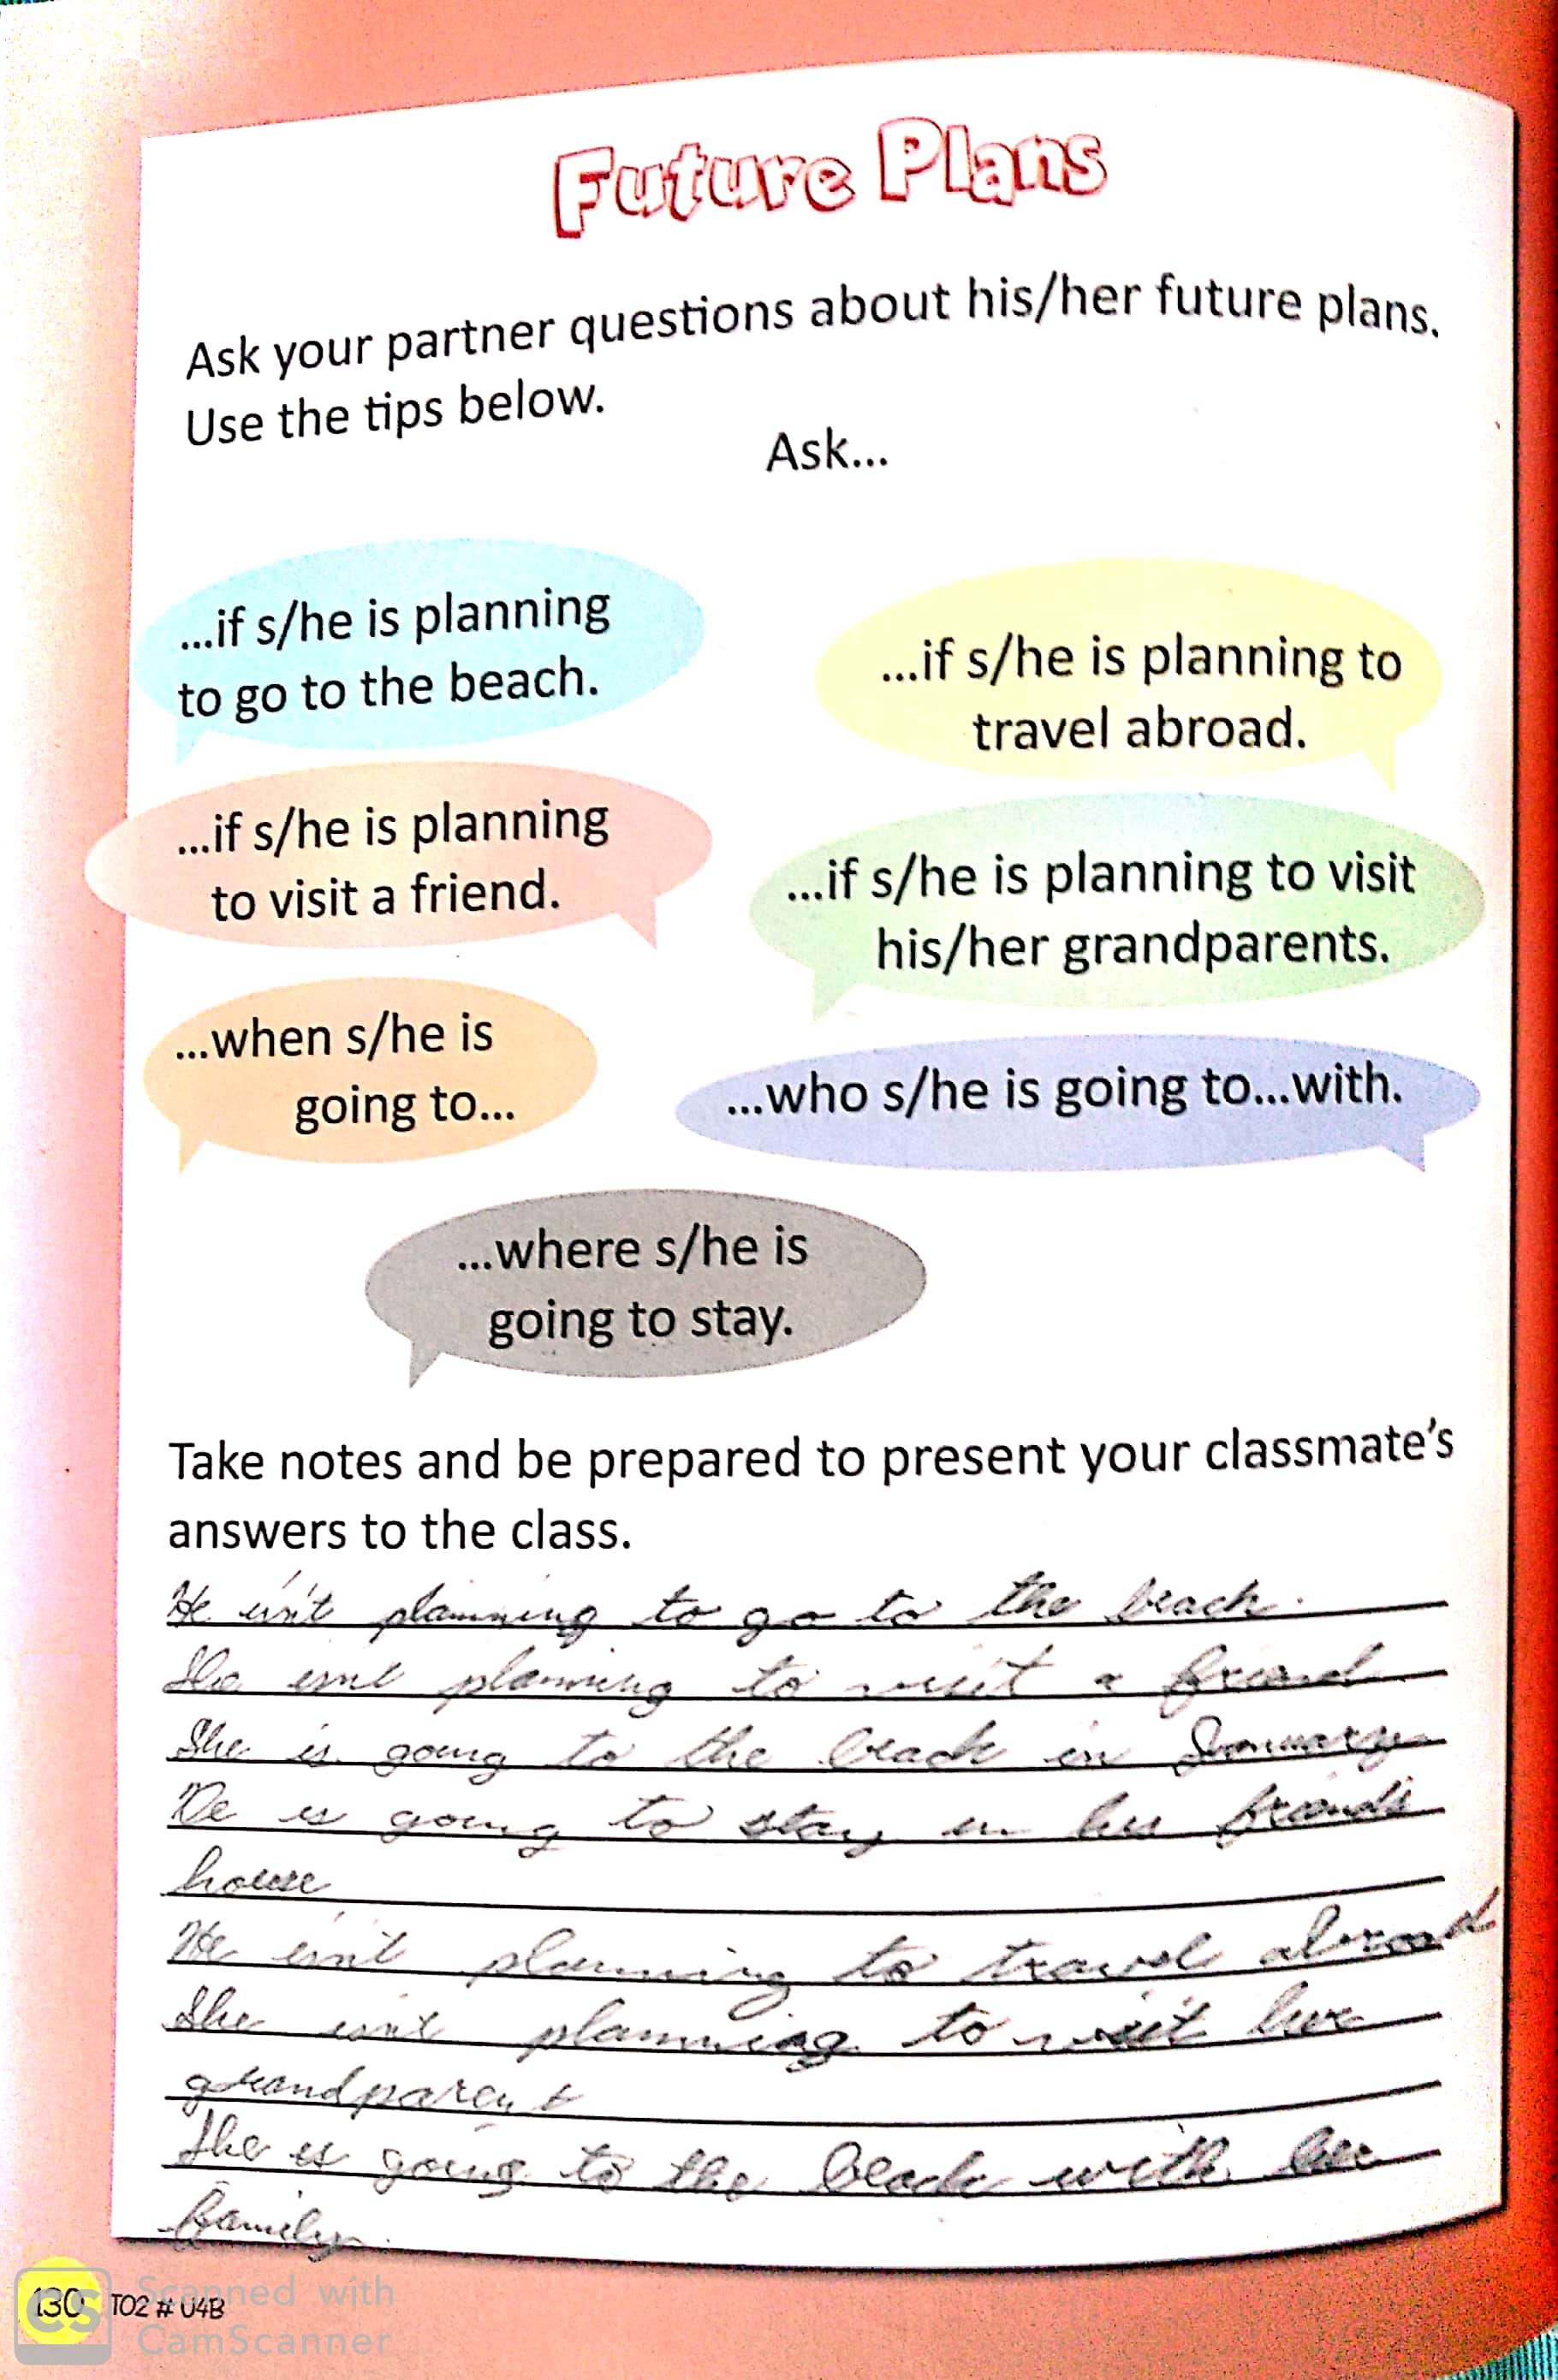 Future Plans
Ask your partner questions about his/her future plans.
Use the tips below.
Ask...
...if s/he is planning
to go to the beach.
...if s/he is planning to
travel abroad.
...if s/he is planning
to visit a friend.
...if s/he is planning to visit
his/her grandparents.
...when s/he is
going to...
...who s/he is going to...with.
...where s/he is
going to stay.
Take notes and be prepared to present your classmate's
answers to the class.
He isn't planning to go to the beach.
She isn't planning to visit a friend
She is going to the beach in January
He is going to stay in his friends
house
He isn't planning to travel abroad
She isn't planning to visit her
grandparent
She is going to the beach with her
family.
130 TO2 # U4B
CS Scanned with
CamScanner